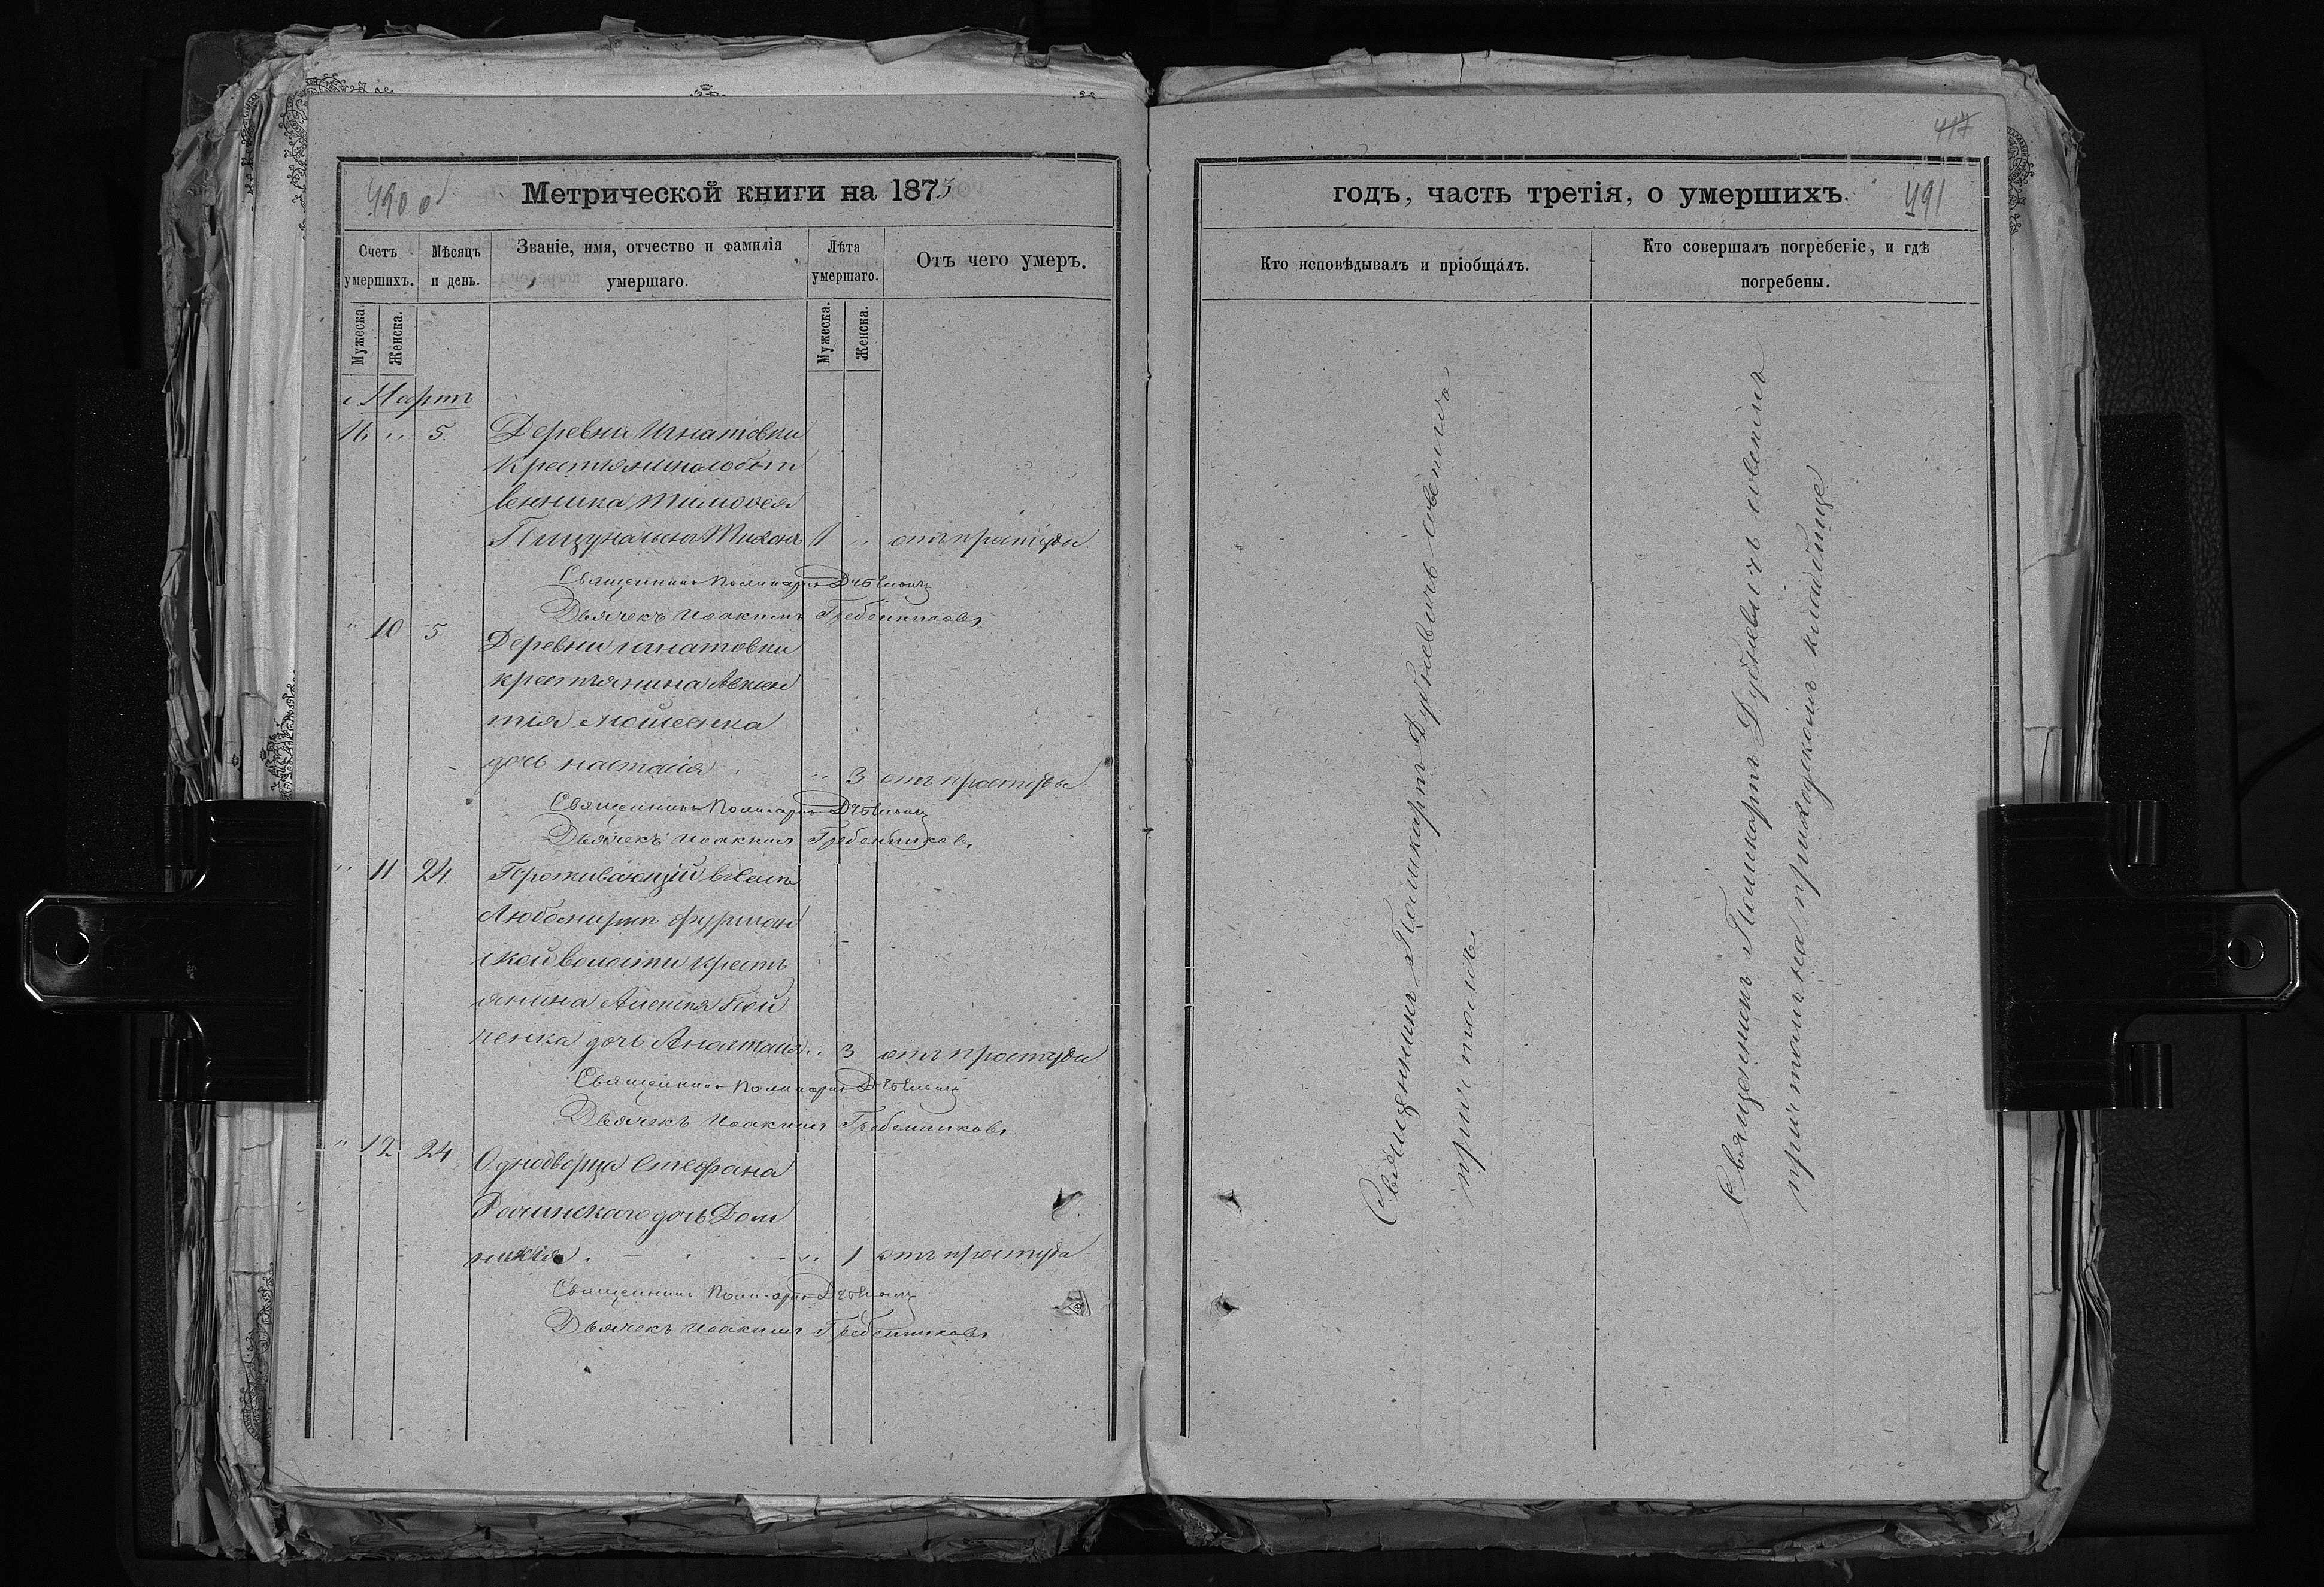 490 об
Метрической книги на 1873
Счетъ умершихъ.
Мѣсяцъ и день.
Званіе, имя, отчество и фамилія
умершаго.
Лѣта умершаго.
Отъ чего умеръ.
Мужеска.
Женска.
Мужеска.
Женска.
Мартъ
16 " 5. Деревни Игнатовки
крестьянина собст
венника Тимофея
сынъ Тихонъ 1 " отъ простуды.
Священникъ Поликарпъ Дубневичъ
Дьячекъ Иоакимъ Гребенниковъ
" 10 5 Деревни Игнатовки
крестьянина Авксен
тія Мошенка
дочь Настасія " 3 отъ простуды.
Священникъ Поликарпъ Дубневичъ
Дьячекъ Иоакимъ Гребенниковъ
" 11 24 Проживающій в селѣ
Любомирки
ской волости кресть
янина Алексѣя Пой
ченка дочь Анастасія " 3 отъ простуды
Священникъ Поликарпъ Дубневичъ
Дьячекъ Иоакимъ Гребенниковъ
" 12 24 Однодворца Стефана
Рачинскаго дочь Дом
никія " 1 отъ простуды
Священникъ Поликарпъ Дубневичъ
Дьячекъ Иоакимъ Гребенниковъ
417
годъ, часть третія, о умершихъ.
491
Кто исповѣдывалъ и пріобщалъ.
Кто совершалъ погребеніе, и гдѣ
погребены.
Священникъ Поликарпъ Дубневичъ совсемъ
причтомъ
Священникъ Поликарпъ Дубневичъ совсемъ
причтомъ на приходскомъ кладбище